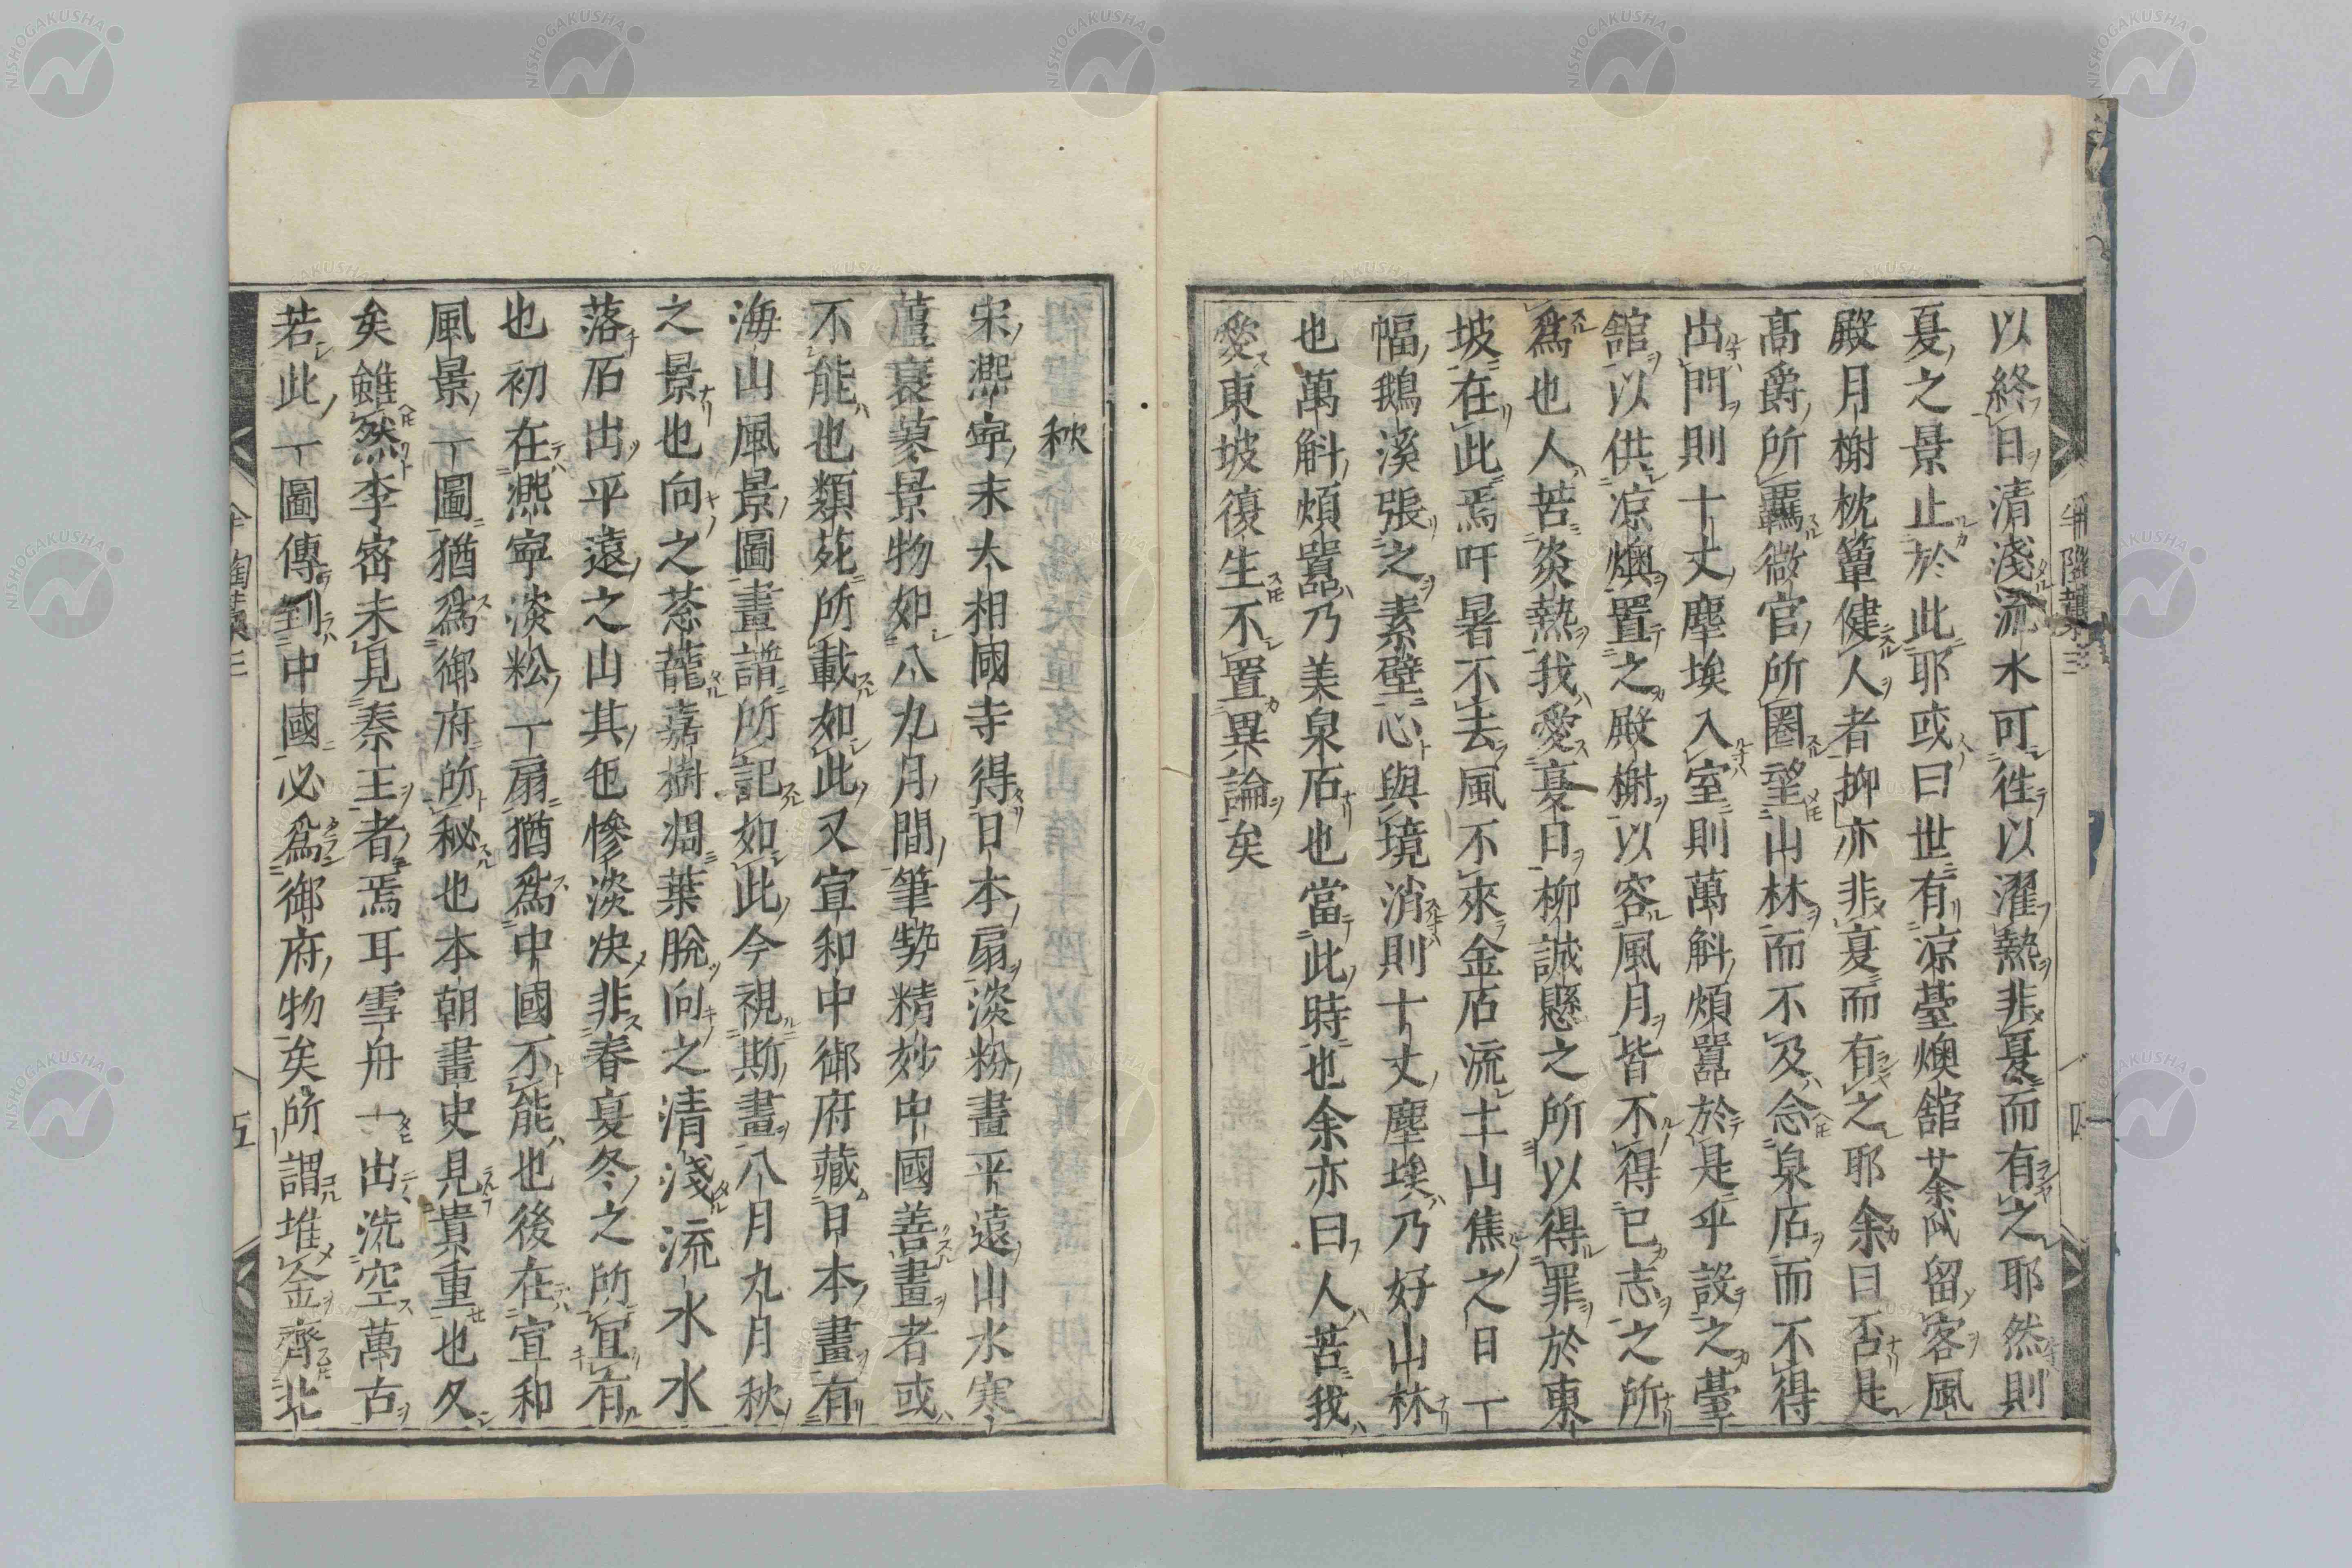 以終日清淺流水可徃以濯熱非夏而有之耶然則
夏之景止於此耶或曰世有凉臺燠舘茶甌留客風
殿月榭枕簟健人者抑亦非夏而有之耶余曰否是
高爵所羈微官所圈望山林而不及念泉石而不得
出門則十丈塵埃入室則萬斛煩囂於是乎設之臺
舘以供凉燠置之殿榭以容風月皆不得已志之所
爲也人苦炎熱我愛夏日柳誠懸之所以得罪於東
坡在此焉吁暑不去風不來金石流土山焦之日一
幅鵝溪張之素壁心與境消則十丈塵埃乃好山林
也萬斛煩囂乃美泉石也當此時也余亦曰人苦我
愛東坡復生不置異論矣
秋
宋熈寧末大相國寺得日本扇淡粉畫平遠山水寒
蘆衰蓼景物如八九月間筆勢精妙中國善畫者或
不能也類苑所載如此又宣和中御府藏日本畫有
海山風景圖畫譜所記如此今視斯畫八月九月秋
之景也向之葱蘢嘉樹凋葉脫向之清淺流水水
落石出平遠之山其色慘淡决非春夏冬之所宜有
也初在熈寧淡粉一扇猶爲中國不能也後在宣和
風景一圖猶爲御府所秘也本朝畫史見貴重也久
矣雖然李宻未見秦王者焉耳雪舟一出洗空萬古
若此一圖傳到中國必爲御府物矣所謂堆金齊北
五